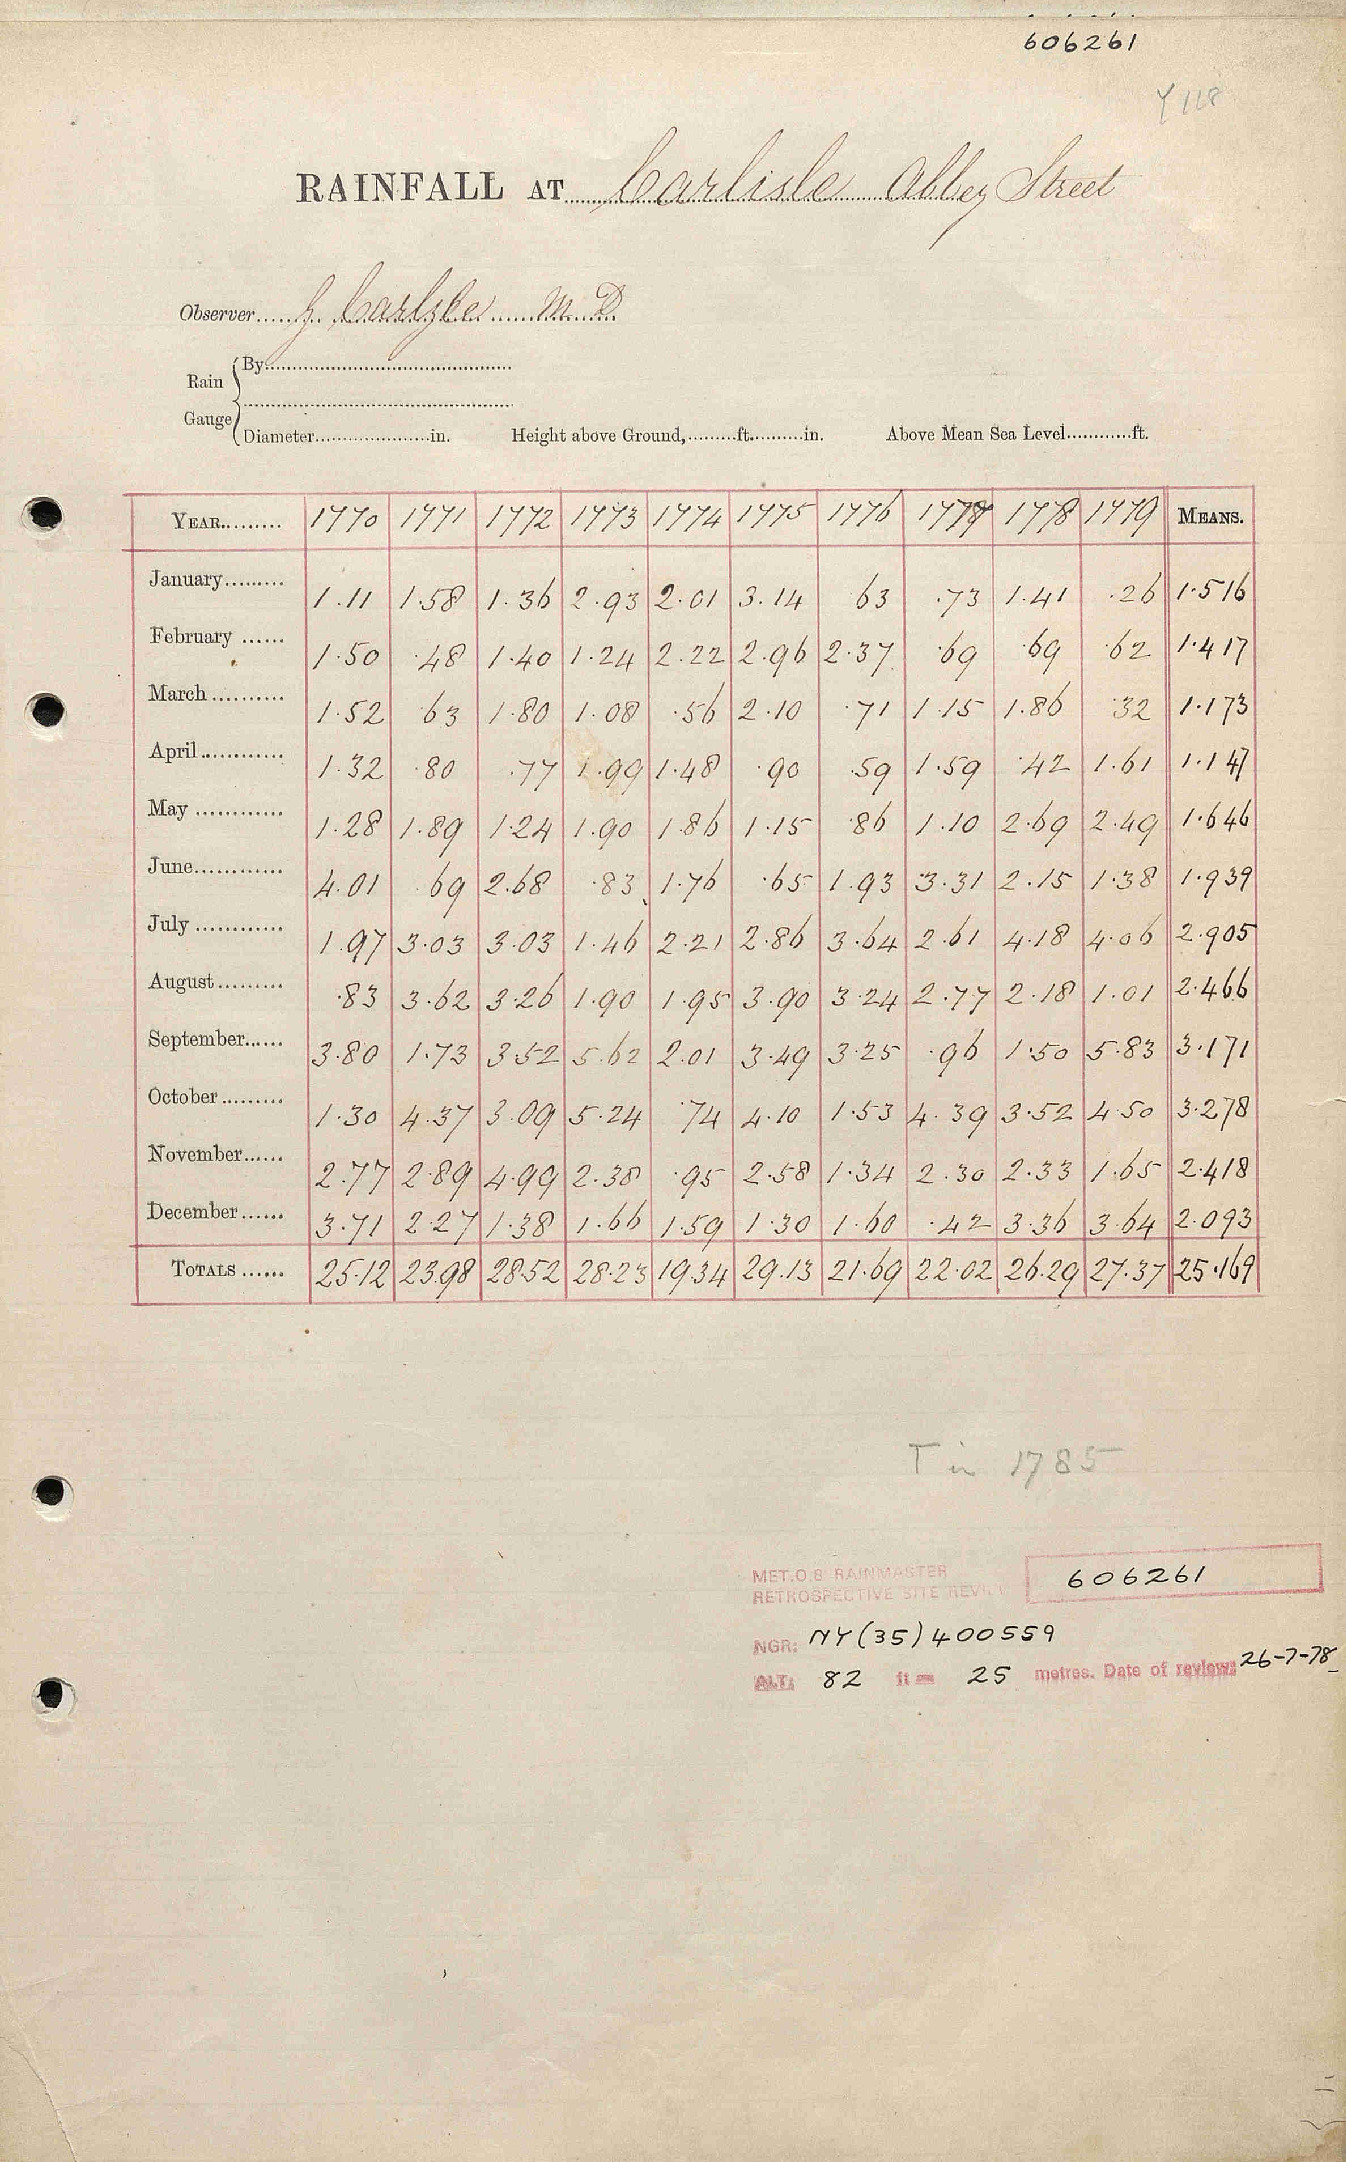 606261
RAINFALL AT Carlisle Abbey Street
Observer G Carlyle M.D.
Rain Gauge
By
Diameter in. Height above Ground, ft. in. Above Mean Sea Level ft.
YEAR 1770 1771 1772 1773 1774 1775 1776 1777 1778 1779 MEANS.
January 1.11 1.58 1.36 2.93 2.01 3.14 .63 .73 1.41 .26 1.516
February 1.50 .48 1.40 1.24 2.22 2.96 2.37 .69 .69 .62 1.417
March 1.52 .63 1.80 1.08 .56 2.10 .71 1.15 1.86 .32 1.173
April 1.32 .80 .77 1.99 1.48 .90 .59 1.59 .42 1.61 1.147
May 1.28 1.89 1.24 1.90 1.86 1.15 .86 1.10 2.69 2.49 1.646
June 4.01 .69 2.68 .83 1.76 .65 1.93 3.31 2.15 1.38 1.939
July 1.97 3.03 3.03 1.46 2.21 2.86 3.64 2.61 4.18 4.06 2.905
August .83 3.62 3.26 1.90 1.95 3.90 3.24 2.77 2.18 1.01 2.466
September 3.80 1.73 3.52 5.62 2.01 3.49 3.25 .96 1.50 5.83 3.171
October 1.30 4.37 3.09 5.24 .74 4.10 1.53 4.39 3.52 4.50 3.278
November 2.77 2.89 4.99 2.38 .95 2.58 1.34 2.30 2.33 1.65 2.418
December 3.71 2.27 1.38 1.66 1.59 1.30 1.60 .42 3.36 3.64 2.093
TOTALS 25.12 23.98 28.52 28.23 19.34 29.13 21.69 22.02 26.29 27.37 25.169
T in 1785
MET.O.8 RAINMASTER
RETROSPECTIVE SITE REVIEW 606261
NGR: NY (35) 400559
ALT: 82 ft = 25 metres. Date of review: 26-7-78